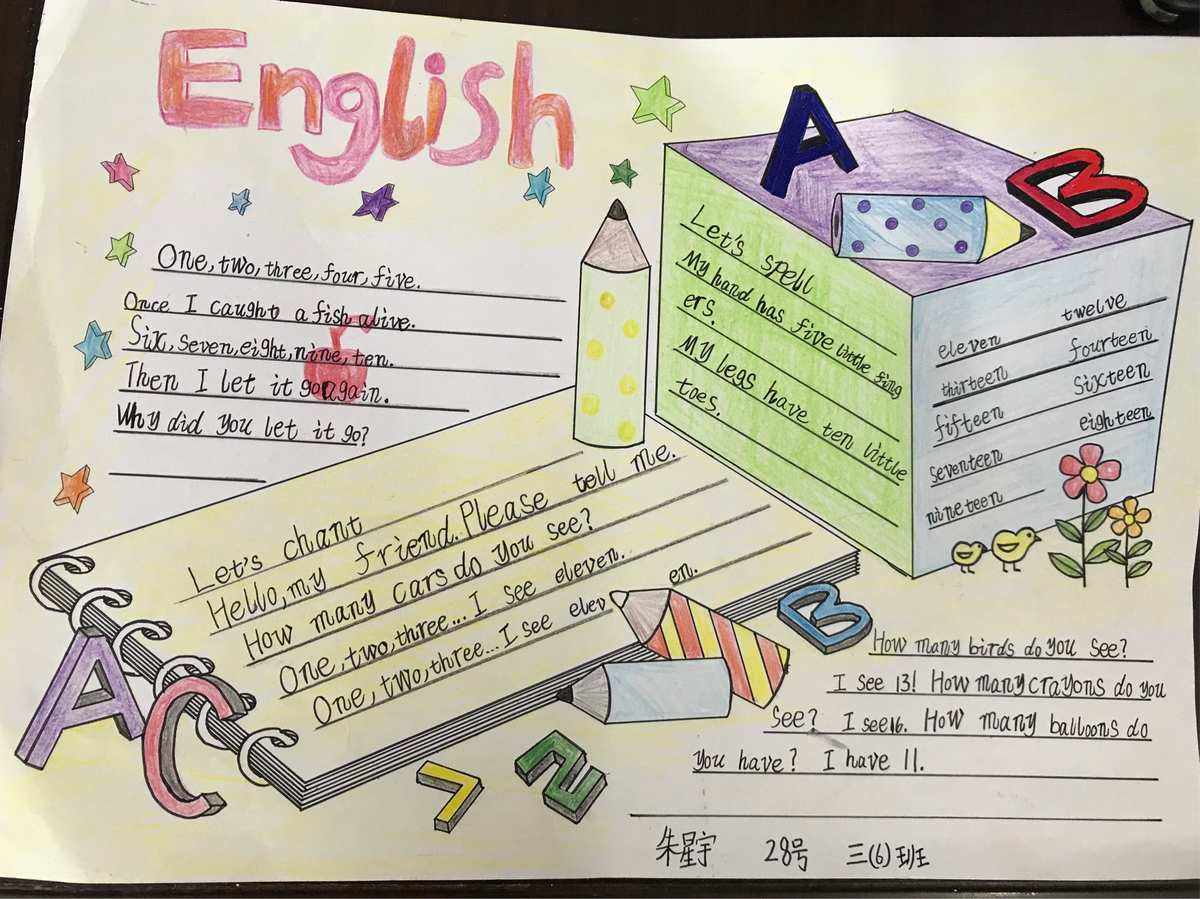 English
One, two, three, four, five.
Once I caught a fish alive.
Six, seven, eight, nine, ten.
Then I let it go again.
Why did you let it go?
A
B
Let's spell
My hand has five little fing
ers.
My legs have ten little
toes.
eleven twelve
thirteen fourteen
fifteen sixteen
seventeen eighteen
nineteen
Let's chant
Hello, my friend. Please tell me.
How many cars do you see?
One, two, three... I see eleven.
One, two, three... I see elev en.
A
C
7
2
B
How many birds do you see?
I see 13! How many crayons do you
see? I see 16. How many balloons do
you have? I have 11.
朱星宇 28号 三(6)班